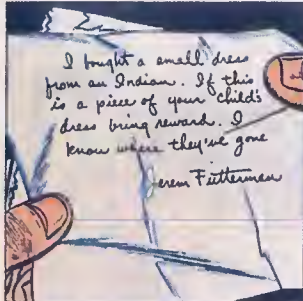 I bought a small dress
from an Indian. If this
is a piece of your child's
dress bring reward. I
know where they've gone
Jerem Futterman